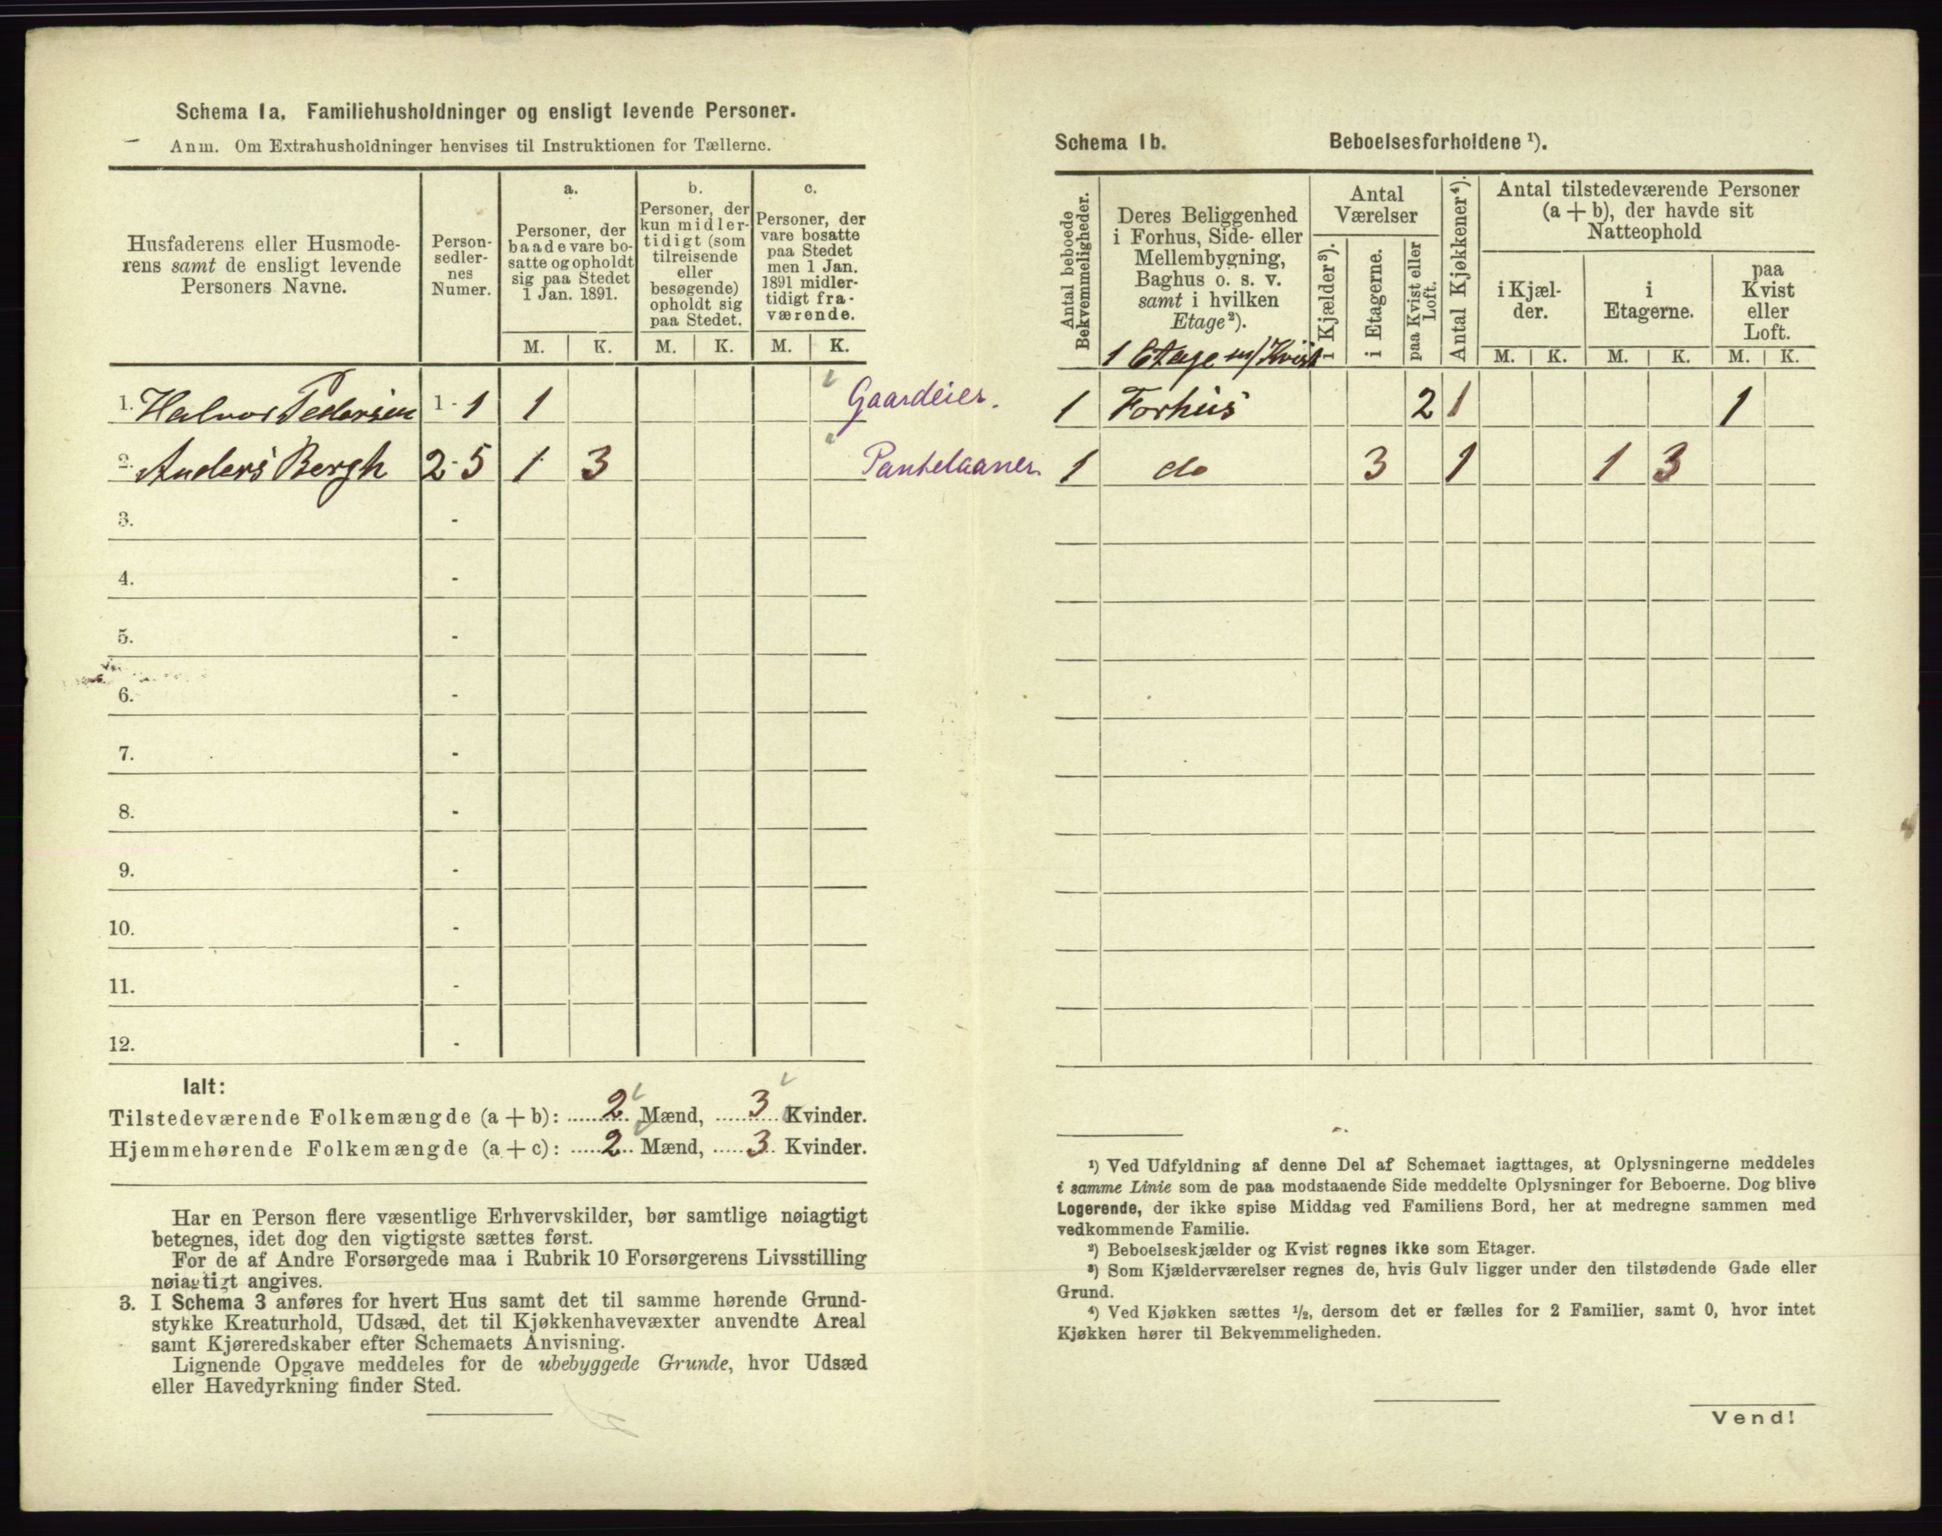 Schema 1a. Familiehusholdninger og ensligt levende Personer.
Anm. Om Extrahusholdninger henvises til Instruktionen for Tællerne.
Husfaderens eller Husmode-
rens samt de ensligt levende
Personers Navne.
Person-
sedler-
nes
Numer.
a.
Personer, der
baade vare bo-
satte og opholdt
sig paa Stedet
1 Jan. 1891.
b.
Personer, der
kun midler-
tidigt (som
tilreisende
eller
besøgende)
opholdt sig
paa Stedet.
c.
Personer, der
vare bosatte
paa Stedet
men 1 Jan.
1891 midler-
tidigt fra-
værende.
M. K. M. K. M. K.
1. Halvor Pedersen 1 - 1 1 Gaardeier.
2. Anders Bergh 2 - 5 1 3 Pantelaaner
3. -
4. -
5. -
6. -
7. -
8. -
9. -
10. -
11. -
12. -
Ialt:
Tilstedeværende Folkemængde (a + b): 2 Mænd, 3 Kvinder.
Hjemmehørende Folkemængde (a + c): 2 Mænd, 3 Kvinder.
Har en Person flere væsentlige Erhvervskilder, bør samtlige nøiagtigt
betegnes, idet dog den vigtigste sættes først.
For de af Andre Forsørgede maa i Rubrik 10 Forsørgerens Livsstilling
nøiagtigt angives.
3. I Schema 3 anføres for hvert Hus samt det til samme hørende Grund-
stykke Kreaturhold, Udsæd, det til Kjøkkenhavevæxter anvendte Areal
samt Kjøreredskaber efter Schemaets Anvisning.
Lignende Opgave meddeles for de ubebyggede Grunde, hvor Udsæd
eller Havedyrkning finder Sted.
Schema 1b. Beboelsesforholdene ¹).
Antal beboede
Bekvemmeligheder.
Deres Beliggenhed
i Forhus, Side- eller
Mellembygning,
Baghus o. s. v.
samt i hvilken
Etage²).
1 Etage m/Kvist
Antal
Værelser
i Kjælder³).
i Etagerne.
paa Kvist eller
Loft.
Antal Kjøkkener⁴).
Antal tilstedeværende Personer
(a + b), der havde sit
Natteophold
i Kjæl-
der.
i
Etagerne.
paa
Kvist
eller
Loft.
M. K. M. K. M. K.
1 Forhus 2 1 1
1 do 3 1 1 3
¹) Ved Udfyldning af denne Del af Schemaet iagttages, at Oplysningerne meddeles
i samme Linie som de paa modstaaende Side meddelte Oplysninger for Beboerne. Dog blive
Logerende, der ikke spise Middag ved Familiens Bord, her at medregne sammen med
vedkommende Familie.
²) Beboelseskjælder og Kvist regnes ikke som Etager.
³) Som Kjælderværelser regnes de, hvis Gulv ligger under den tilstødende Gade eller
Grund.
⁴) Ved Kjøkken sættes ½, dersom det er fælles for 2 Familier, samt 0, hvor intet
Kjøkken hører til Bekvemmeligheden.
Vend!